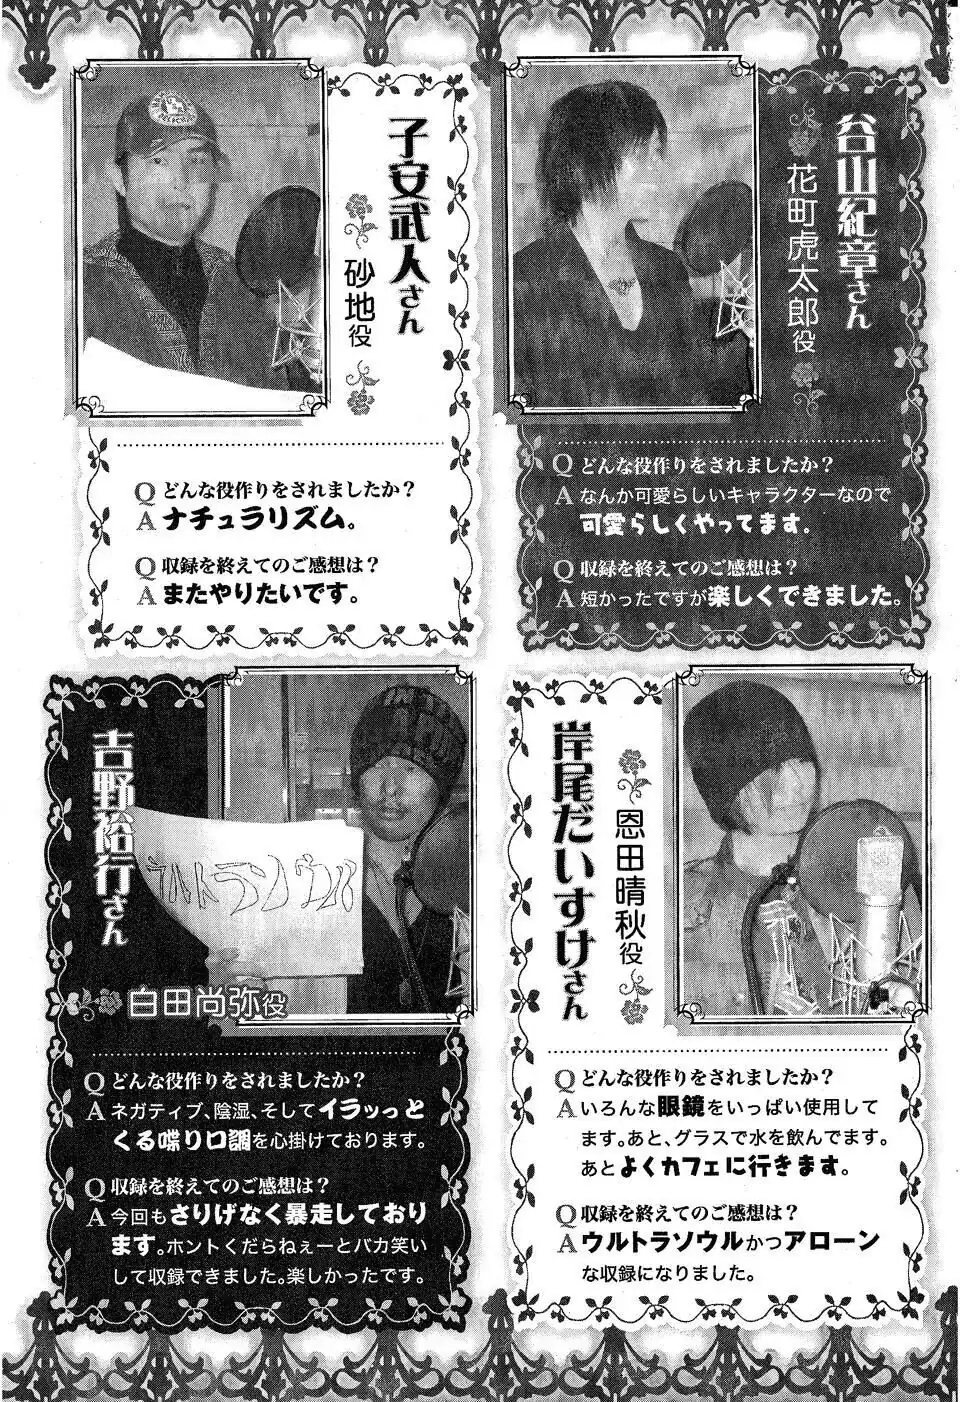 谷山紀章さん
花町虎太郎役
Q どんな役作りをされましたか?
A なんか可愛らしいキャラクターなので
可愛らしくやってます。
Q 収録を終えてのご感想は?
A 短かったですが楽しくできました。
子安武人さん
砂地役
Q どんな役作りをされましたか?
A ナチュラリズム。
Q 収録を終えてのご感想は?
A またやりたいです。
岸尾だいすけさん
恩田晴秋役
Q どんな役作りをされましたか?
A いろんな眼鏡をいっぱい使用して
ます。あと、グラスで水を飲んでます。
あとよくカフェに行きます。
Q 収録を終えてのご感想は?
A ウルトラソウルかつアローン
な収録になりました。
吉野裕行さん
白田尚弥役
Q どんな役作りをされましたか?
A ネガティブ、陰湿、そしてイラッっと
くる喋り口調を心掛けております。
Q 収録を終えてのご感想は?
A 今回もさりげなく暴走しており
ます。ホントくだらねぇーとバカ笑い
して収録できました。楽しかったです。